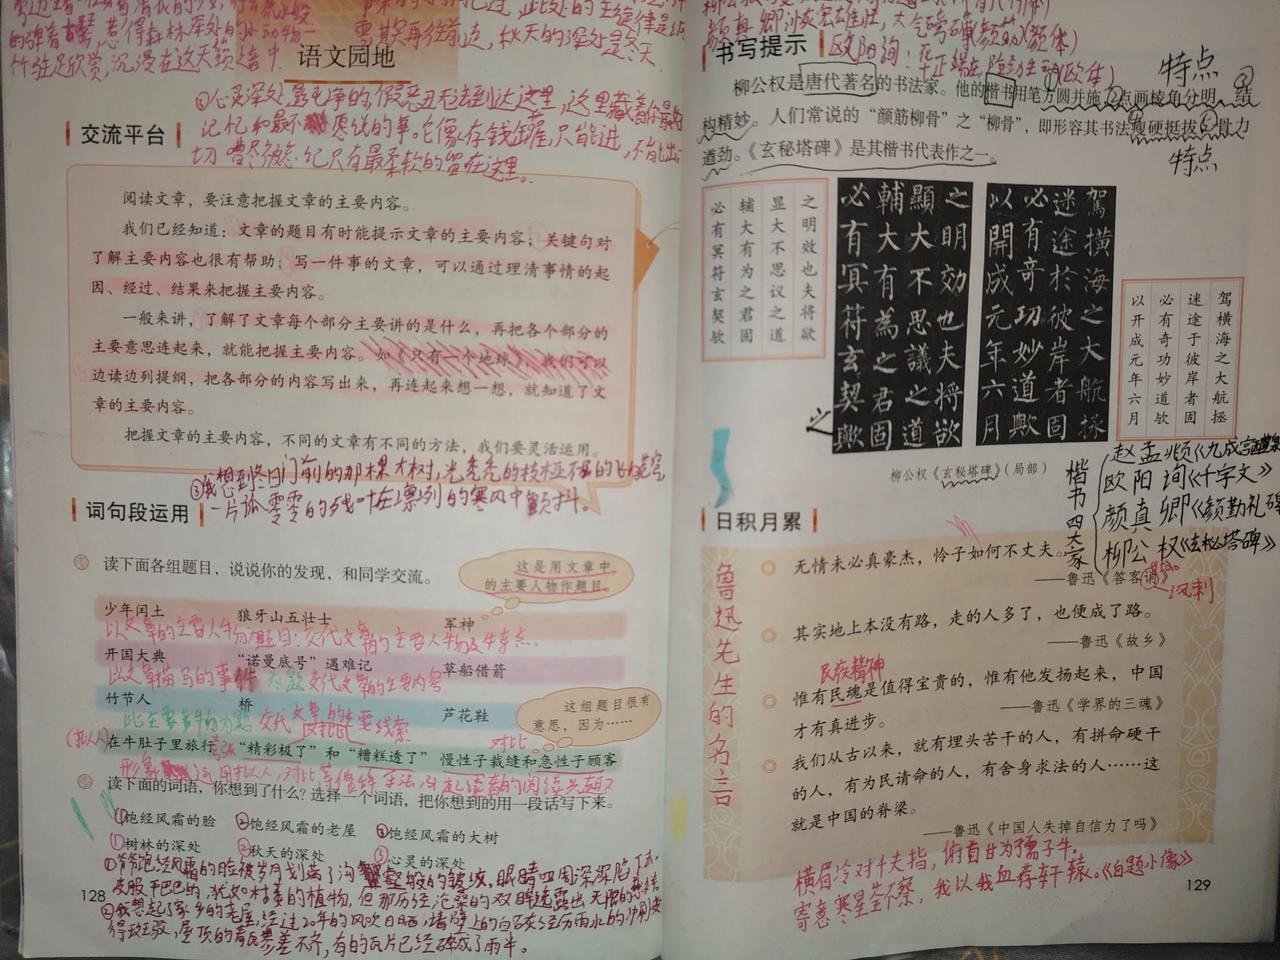 语文园地
②心灵深处是最干净的,假恶丑无法到达这里,这里藏着你最好
记忆和最不愿说的事。它像存钱罐,只能进,不能出
纪只有最柔软的留在这里。
交流平台
阅读文章,要注意把握文章的主要内容。
我们已经知道:文章的题目有时能提示文章的主要内容;关键句对
了解主要内容也很有帮助;写一件事的文章,可以通过理清事情的起
因、经过、结果来把握主要内容。
一般来讲,了解了文章每个部分主要讲的是什么,再把各个部分的
主要意思连起来,就能把握主要内容。如《只有一个地球》,我们可以
边读边列提纲,把各部分的内容写出来,再连起来想一想,就知道了文
章的主要内容。
把握文章的主要内容,不同的文章有不同的方法,我们要灵活运用。
③我想到冬日门前的那棵大树,光秃秃的枝桠
一片孤零零的残叶在凛冽的寒风中颤抖。
词句段运用
读下面各组题目,说说你的发现,和同学交流。
这是用文章中
的主要人物作题目。
少年闰土 狼牙山五壮士 军神
以文章的主要人物为题目:交代文章的主要人物及牛寺点.
开国大典 “诺曼底号”遇难记 草船借箭
以文章描写的事件为题 交代文章的主要内容
竹节人 桥 芦花鞋
交代文章的主要线索
这组题目很有
意思,因为……
(拟人) 对比
在牛肚子里旅行 “精彩极了”和“糟糕透了” 慢性子裁缝和急性子顾客
读下面的词语,你想到了什么?选择一个词语,把你想到的用一段话写下来。
①饱经风霜的脸 ②饱经风霜的老屋 ③饱经风霜的大树
①树林的深处 ②秋天的深处 ③心灵的深处
①爷爷饱经风霜的脸被岁月划满了沟壑般的皱纹,眼睛四周深深陷了
皮肤干巴巴的,犹如枯萎的植物,但那历经沧桑的双眸透露出无限的
②我想起了家乡的老屋,经过20年的风吹日晒,墙壁上的白石灰经历雨水的冲刷变
屋顶的青瓦参差不齐,有的瓦片已经碎成了两半。
128
书写提示
欧阳询:
特点
柳公权是唐代著名的书法家。他的楷书用笔方圆并施,点画棱角分明,结
构精妙。人们常说的“颜筋柳骨”之“柳骨”,即形容其书法瘦硬挺拔、骨力
遒劲。《玄秘塔碑》是其楷书代表作之一。
特点
之明效也夫将欲
显大不思议之道
辅大有为之君固
必有冥符玄契欤
之明効也夫将欲
顯大不思議之道
輔大有為之君固
必有冥符玄契歟
駕橫海之大航拯
迷途於彼岸者固
必有奇功妙道歟
以開成元年六月
驾横海之大航拯
迷途于彼岸者固
必有奇功妙道欤
以开成元年六月
柳公权《玄秘塔碑》(局部)
楷书四大家
赵孟兆页《九成宫
欧阳询《千字文》
颜真卿《颜勤礼碑
柳公权《玄秘塔碑》
日积月累
鲁迅先生的名言
无情未必真豪杰,怜子如何不丈夫。
——鲁迅《答客诮》
讽刺
其实地上本没有路,走的人多了,也便成了路。
——鲁迅《故乡》
民族精神
惟有民魂是值得宝贵的,惟有他发扬起来,中国
才有真进步。
——鲁迅《学界的三魂》
我们从古以来,就有埋头苦干的人,有拼命硬干
的人,有为民请命的人,有舍身求法的人……这
就是中国的脊梁。
——鲁迅《中国人失掉自信力了吗》
横眉冷对千夫指,俯首甘为孺子牛。
寄意寒星荃不察,我以我血荐轩辕。《自题小像》
129